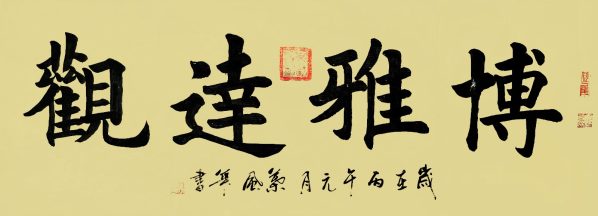 博雅達觀
歲在丙午元月風書